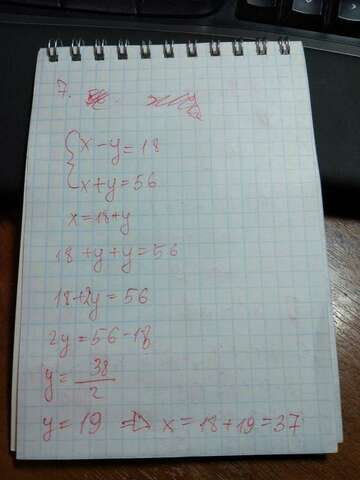 7.
{ x - y = 18
x + y = 56
x = 18 + y
18 + y + y = 56
18 + 2y = 56
2y = 56 - 18
y = 38/2
y = 19 => x = 18 + 19 = 37